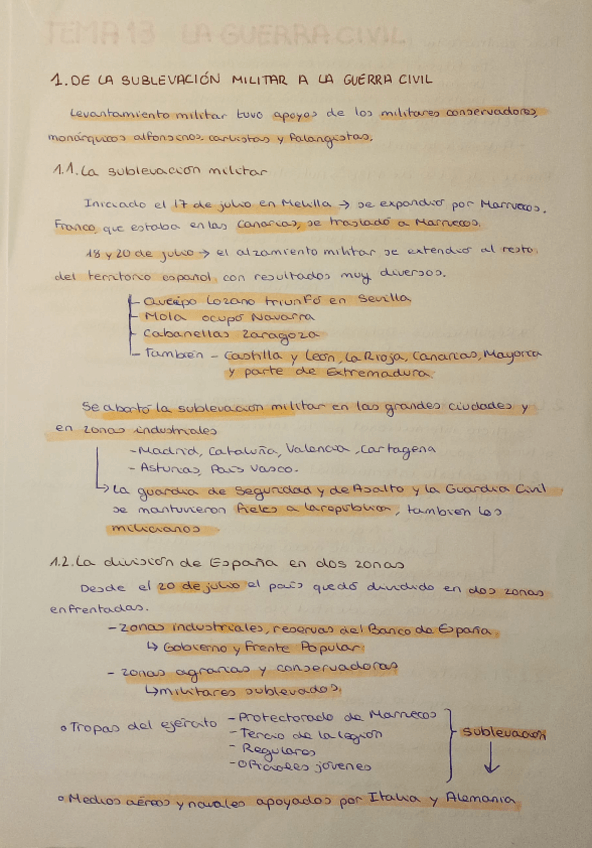 TEMA 13 LA GUERRA CIVIL
1. DE LA SUBLEVACIÓN MILITAR A LA GUERRA CIVIL
Levantamiento militar tuvo apoyos de los militares conservadores,
monárquicos alfonsinos, carlistas y falangistas.
1.1. La sublevación militar
Iniciado el 17 de julio en Melilla → se expandió por Marruecos.
Franco, que estaba en las Canarias, se trasladó a Marruecos.
18 y 20 de julio → el alzamiento militar se extendió al resto
del territorio español, con resultados muy diversos.
- Queipo Lozano triunfó en Sevilla
- Mola ocupó Navarra
- Cabanellas Zaragoza
- También - Castilla y León, La Rioja, Canarias, Mayorca
y parte de Extremadura.
Se abortó la sublevación militar en las grandes ciudades y
en zonas industriales
- Madrid, Cataluña, Valencia, Cartagena
- Asturias, País Vasco.
↳ La guardia de Seguridad y de Asalto y la Guardia Civil
se mantuvieron fieles a la república, también los
milicianos
1.2. La división de España en dos zonas
Desde el 20 de julio el país quedó dividido en dos zonas
enfrentadas.
- Zonas industriales, reservas del Banco de España
↳ Gobierno y Frente Popular
- Zonas agrarias y conservadoras
↳ militares sublevados.
• Tropas del ejército - Protectorado de Marruecos
- Tercio de la legión
- Regulares
- Oficiales jóvenes
sublevación
↓
• Medios aéreos y navales apoyados por Italia y Alemania